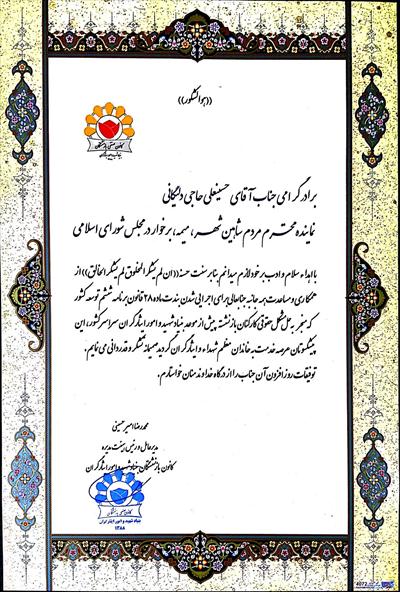 ((هوالشکور))
کانون صنفی بازنشستگان
برادر گرامی جناب آقای حسینعلی حاجی دلیگانی
نماینده محترم مردم شاهین شهر، میمه، برخوار در مجلس شورای اسلامی
با اهداء سلام و ادب بر خود لازم میدانم بنا بر سنت حسنه ((ان لم یشکر المخلوق لم یشکر الخالق)) از
همکاری و مساعدت همه جانبه جنابعالی برای اجرایی شدن بند ت ماده ۲۸ قانون برنامه ششم توسعه کشور
که منجر به حل مشکل حقوقی کارکنان بازنشسته پیش از موعد بنیاد شهید و امور ایثارگران سراسر کشور، این
پیشکسوتان عرصه خدمت به خاندان معظم شهداء و ایثارگران گردید صمیمانه تشکر و قدردانی می نمایم.
توفیقات روزافزون آن جناب را از درگاه خداوند منان خواستارم.
محمدرضا امیرحسینی
مدیرعامل و رئیس هیئت مدیره
کانون بازنشستگان بنیاد شهید و امور ایثارگران
کانون صنفی بازنشستگان
بنیاد شهید و امور ایثارگران
۱۳۸۸
4072